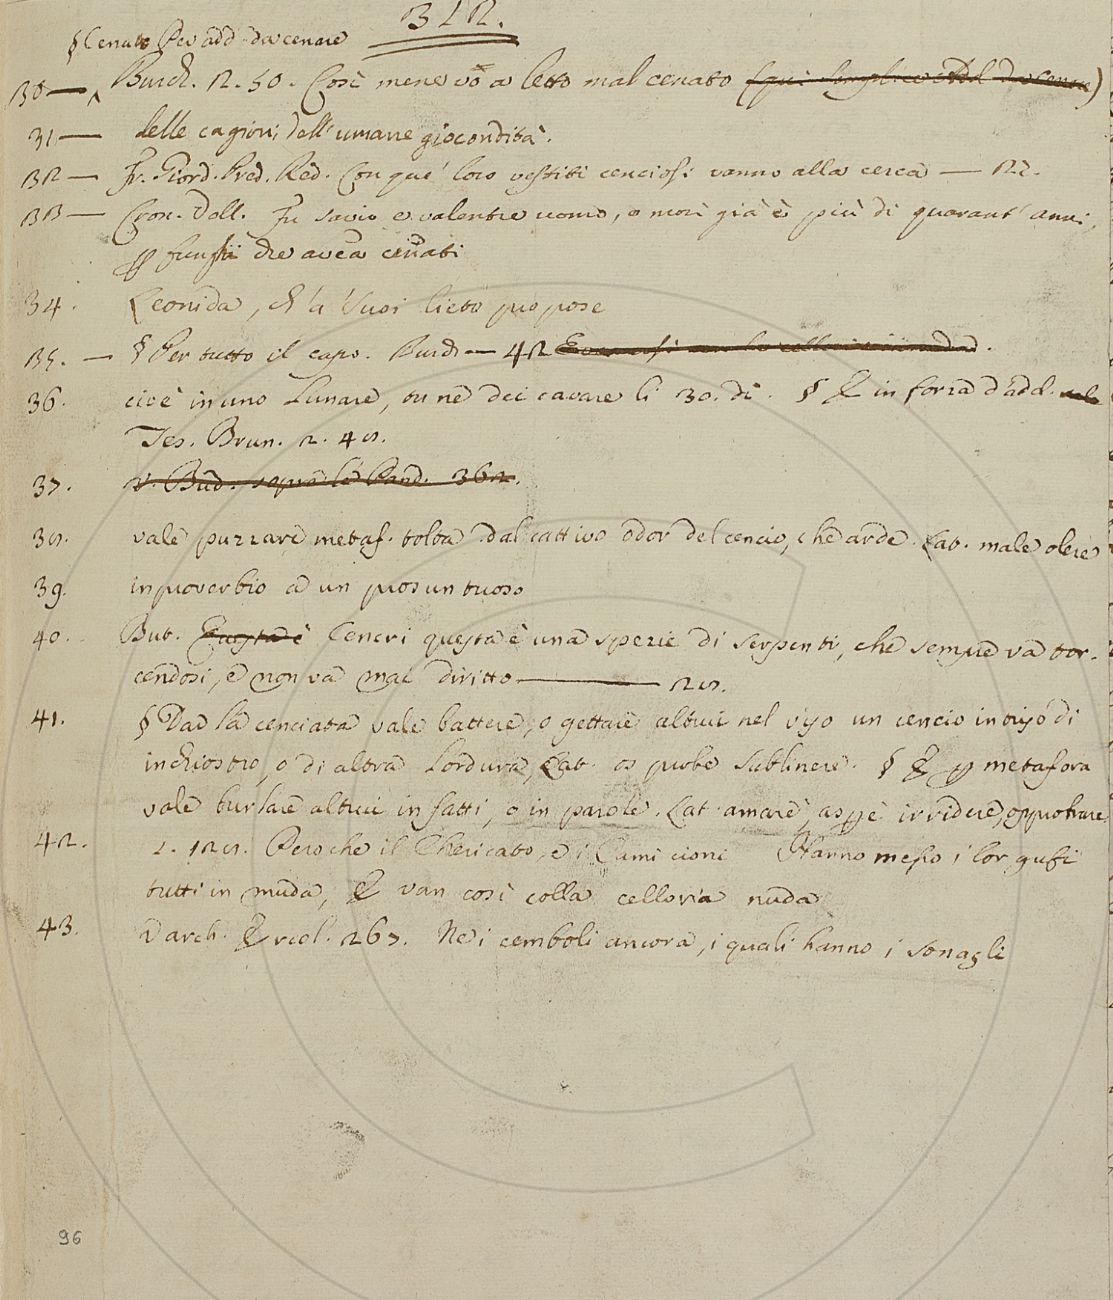 312.
§ Cenato Per add. da cenare
30 — Burch. 2. 50. Così mene vò a letto mal cenato
31 — delle cagioni dell'umane giocondità.
32 — Fr. Giord. Pred. Red. Con que' loro vestiti cenciosi vanno alla cerca — 22.
33 — Cron. Vell. Fu savio e valentre uomo, o morì già è più di quarant'anni,
funghi che avea cenati
34. Leonida, ch'a' suoi lieto propose
35. — § Per tutto il capo. Burch — 42
36. cioè in uno Lunare, tu ne dei cavare li 30. dì. § E in forza d'add.
Tes. Brun. 2. 48.
37. v. Bud. sopra le Pand. 362.
38. vale puzzare metaf. tolta dal cattivo odor del cencio, che arde. Lat. male olere
39. in proverbio a un prosuntuoso
40. But. Questa è Cencri questa è una spezie di serpenti, che sempre va tor-
cendosi, e non va mai diritto — 28.
41. § Dar la cenciata vale battere, o gettare altrui nel viso un cencio intriso di
inchiostro, o di altra lordura, Lat. os probe sublinere. § E metafora
vale burlare altrui in fatti, o in parole. Lat. amare, aspe irridere, opprobrare
42. 2. 128. Peroche il Chericato, e i Camicioni Hanno messo i lor gufi
tutti in muda, E van così colla celloria nuda
43. Varch. Ercol. 267. Ne i cemboli ancora, i quali hanno i sonagli
96